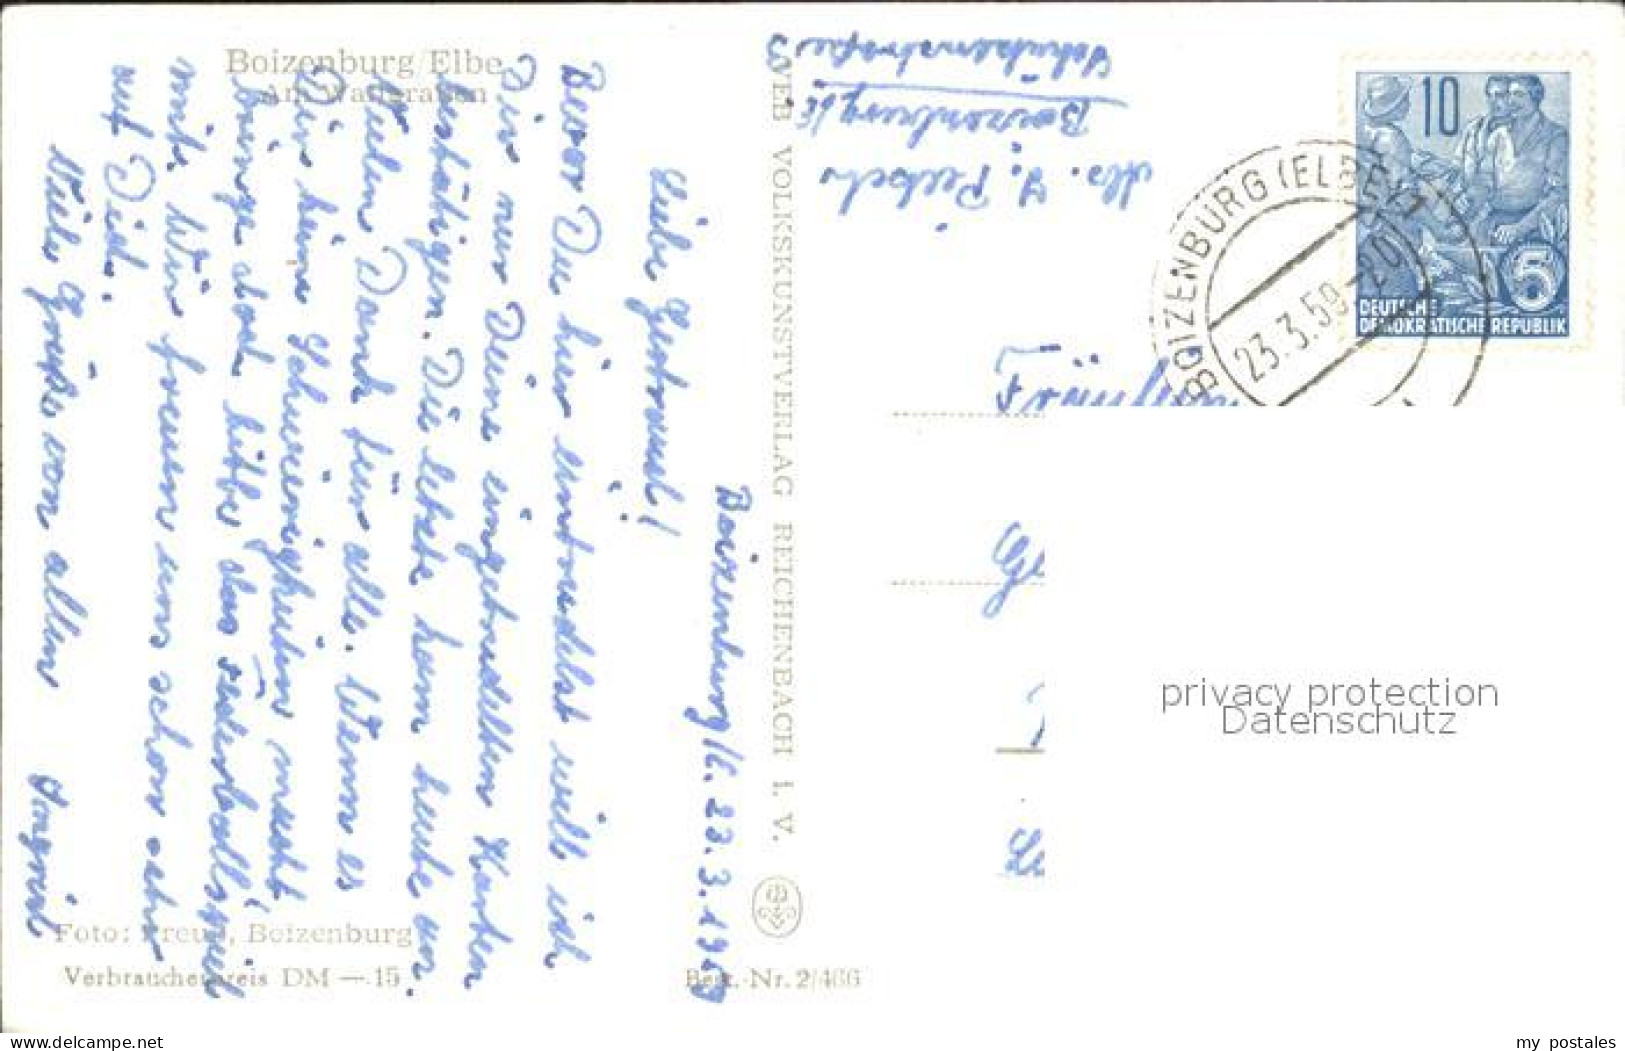 Boizenburg/Elbe
Am Wallgraben
Boizenburg/E. 23.3.1959
Liebe Gertraud!
Bevor Du hier eintrudelst will ich
Dir nur Deine eingetrudelten Karten
bestätigen. Die letzte kam heute an.
Vielen Dank für alle. Wenn es
Dir keine Schwierigkeiten macht
bringe doch bitte das Federballspiel
mit. Wir freuen uns schon sehr
auf Dich.
Viele Grüße von allen Ingrid
Foto: Freud, Boizenburg
Verbraucherpreis DM —.15
Best.-Nr. 2/466
VEB VOLKSKUNSTVERLAG REICHENBACH I. V.
Abs. I. Pietsch
Boizenburg/E.
Schützenstraße 3
BOIZENBURG (ELBE) 1
23.3.59-20
10
5
DEUTSCHE
DEMOKRATISCHE REPUBLIK
privacy protection
Datenschutz
www.delcampe.net
my_postales